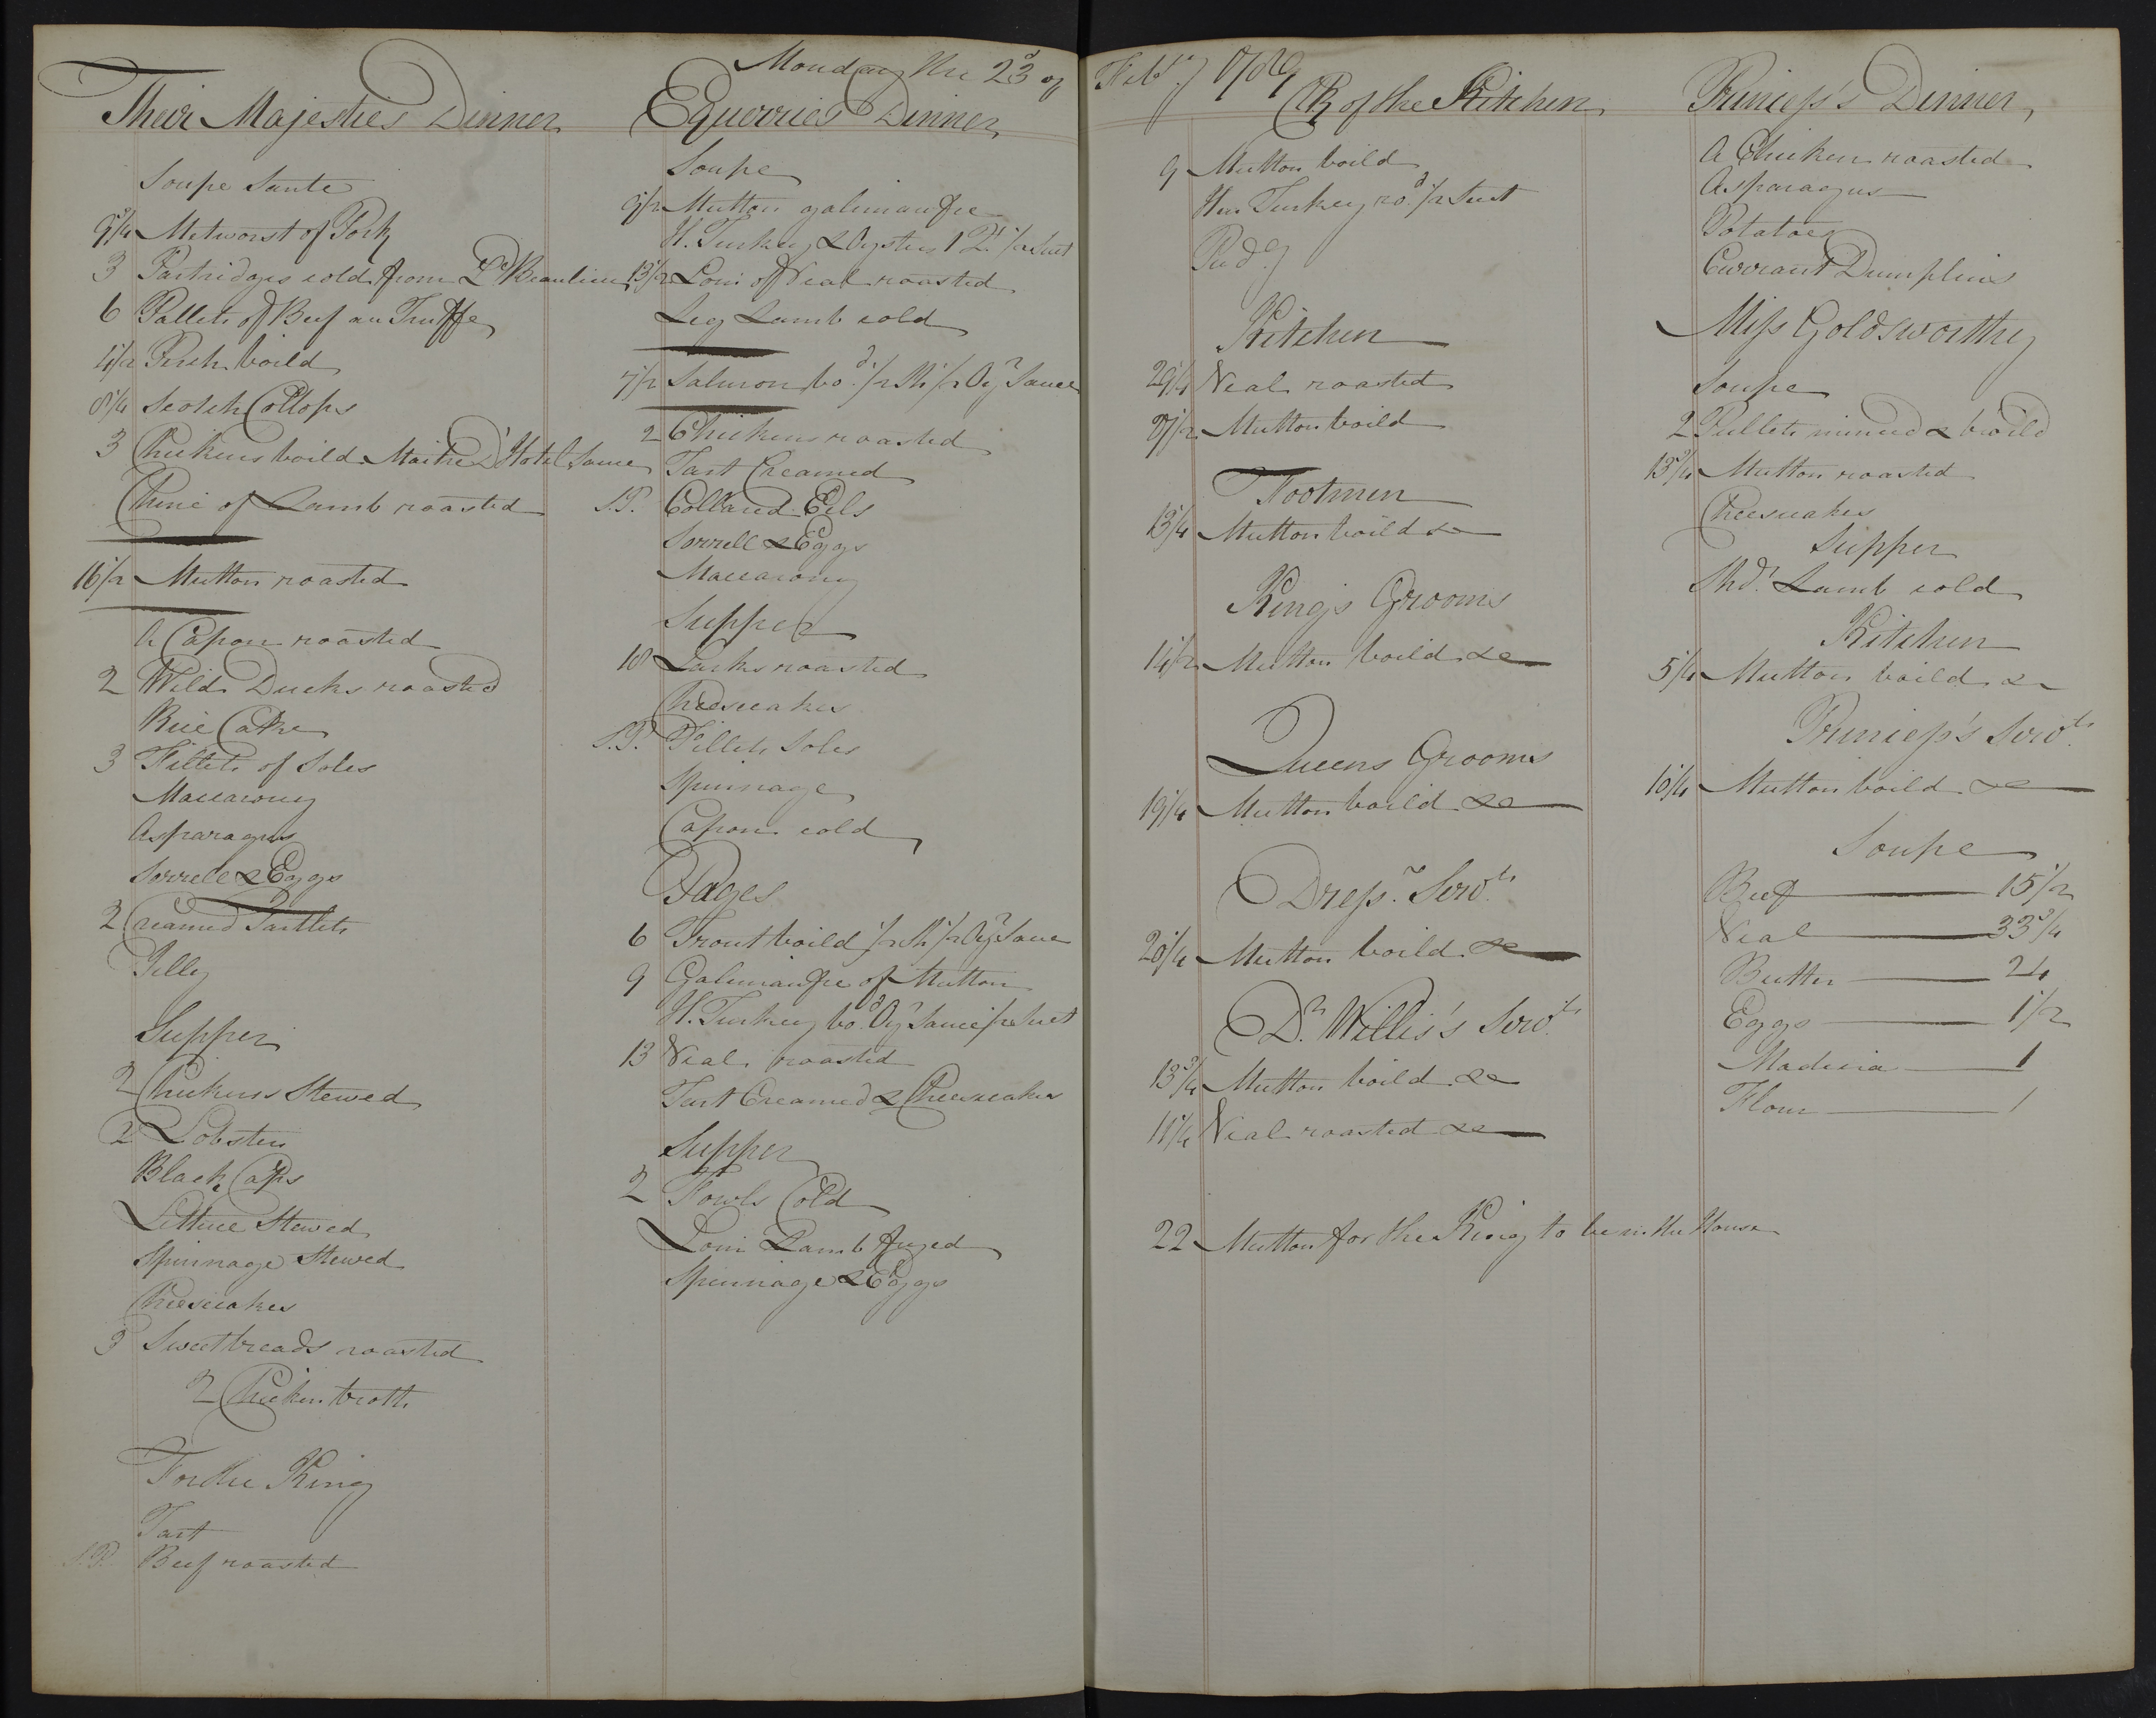 Monday the 23d of Feby 1789
Their Majesties Dinner
Soupe Sante
9 3/4 Metworst of Pork
3 Partridges cold from Ld Beaulieu
6 Pallets of Beef au Truffe
4 1/2 Perch boild
8 1/4 Scotch Collops
3 Chickens boild Maitre D'Hotel Sauce
Chine of Lamb roasted
16 1/2 Mutton roasted
A Capon roasted
2 Wild Ducks roasted
Rice Cake
3 Fillets of Soles
Maccarony
Asparagus
Sorrell & Eggs
2 Creamed Tartlets
Jelly
Supper
2 Chickens Stewed
2 Lobsters
Black Caps
Lettuce Stewed
Spinnage Stewed
Cheescakes
3 Sweetbreads roasted
2 Chicken broth
For the King
Tart
S.P. Beef roasted
Equerries Dinner
Soupe
9 1/2 Mutton galimaufre
H. Turkey & Oysters 1 Qt 1/2 Suet
13 1/2 Loin of Veal roasted
Leg Lamb cold
7 1/2 Salmon bod 1/2 Sh 1/2 Oyr Sauce
2 Chickens roasted
Tart Creamed
S.P. Collared Eels
Sorrell & Eggs
Maccarony
Supper
18 Larks roasted
Cheescakes
S.P. Fillets Soles
Spinnage
Capon cold
Pages
6 Trout boild 1/2 Sh 1/2 Oyr Sauce
9 Galimaufre of Mutton
H. Turkey bod Oyr Sauce 1/2 Suet
13 Veal roasted
Tart Creamed & Cheescakes
Supper
2 Fowls Cold
Loin Lamb fryed
Spinnage & Eggs
Clk of the Kitchen
9 Mutton boild
Hen Turkey rod 1/2 Suet
Pudg
Kitchen
29 1/4 Veal roasted
27 1/2 Mutton boild
Footmen
13 3/4 Mutton boild &c
Kings Grooms
14 1/2 Mutton boild &c
Queens Grooms
19 1/4 Mutton boild &c
Dressr Servts
20 1/4 Mutton boild &c
Dr Willis's Servts
13 3/4 Mutton boild &c
11 1/4 Veal roasted &c
22 Mutton for the King to be in the House
Princess's Dinner
A Chicken roasted
Asparagus
Potatoes
Currant Dumplins
Miss Goldsworthy
Soupe
2 Pullets minced & broild
13 3/4 Mutton roasted
Cheescakes
Supper
Shdr Lamb cold
Kitchen
5 1/4 Mutton boild &c
Princess's Servts
10 1/4 Mutton boild &c
Soupe
Beef 15 1/2
Veal 33 3/4
Butter 24
Eggs 1/2
Madeira 1
Flour 1